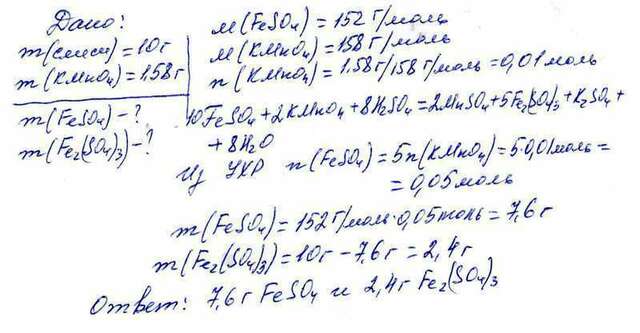 Дано:
m(смеси)=10г
m(KMnO4)=1.58г
m(FeSO4)-?
m(Fe2(SO4)3)-?
M(FeSO4)=152г/моль
M(KMnO4)=158г/моль
n(KMnO4)=1.58г/158г/моль=0,01моль
10FeSO4+2KMnO4+8H2SO4=2MnSO4+5Fe2(SO4)3+K2SO4+
+8H2O
Из УХР n(FeSO4)=5n(KMnO4)=5·0,01моль=
=0,05моль
m(FeSO4)=152г/моль·0,05моль=7,6г
m(Fe2(SO4)3)=10г-7,6г=2,4г
Ответ: 7,6г FeSO4 и 2,4г Fe2(SO4)3